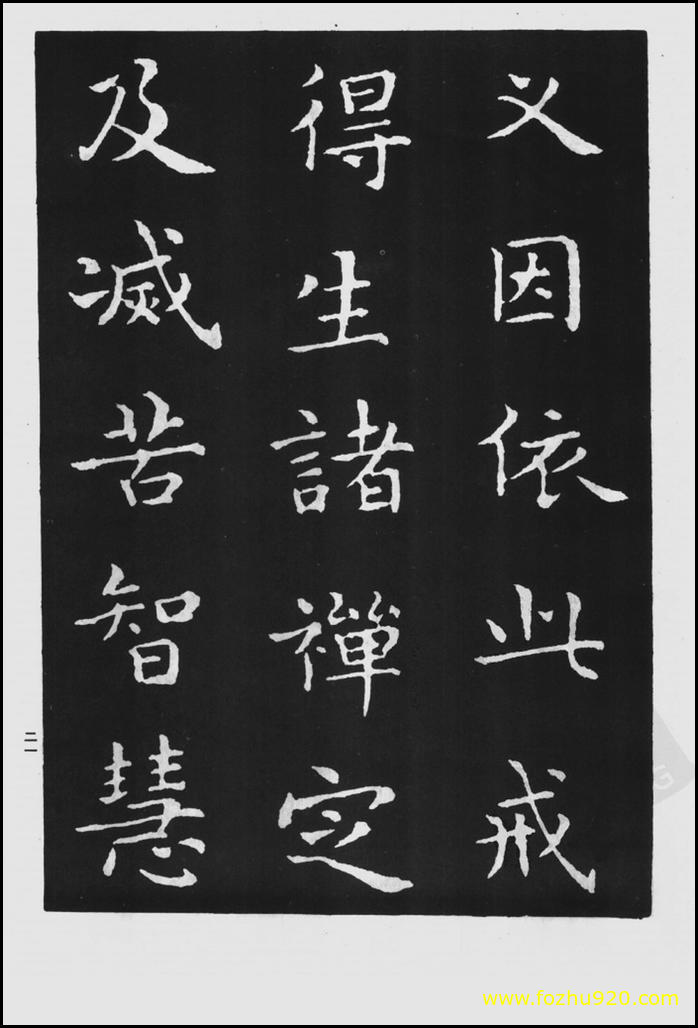 乂因依此戒
得生諸禪定
及滅苦智慧
二一
www.fozhu920.com